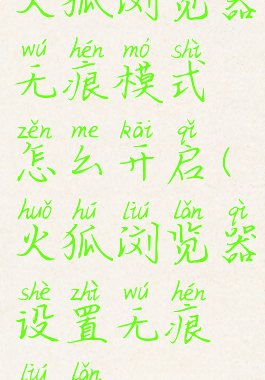 火狐浏览器
wú hén mó shì
无痕模式
zěn me kāi qǐ
怎么开启(
huǒ hú liú lǎn qì
火狐浏览器
shè zhì wú hén
设置无痕
liú lǎn